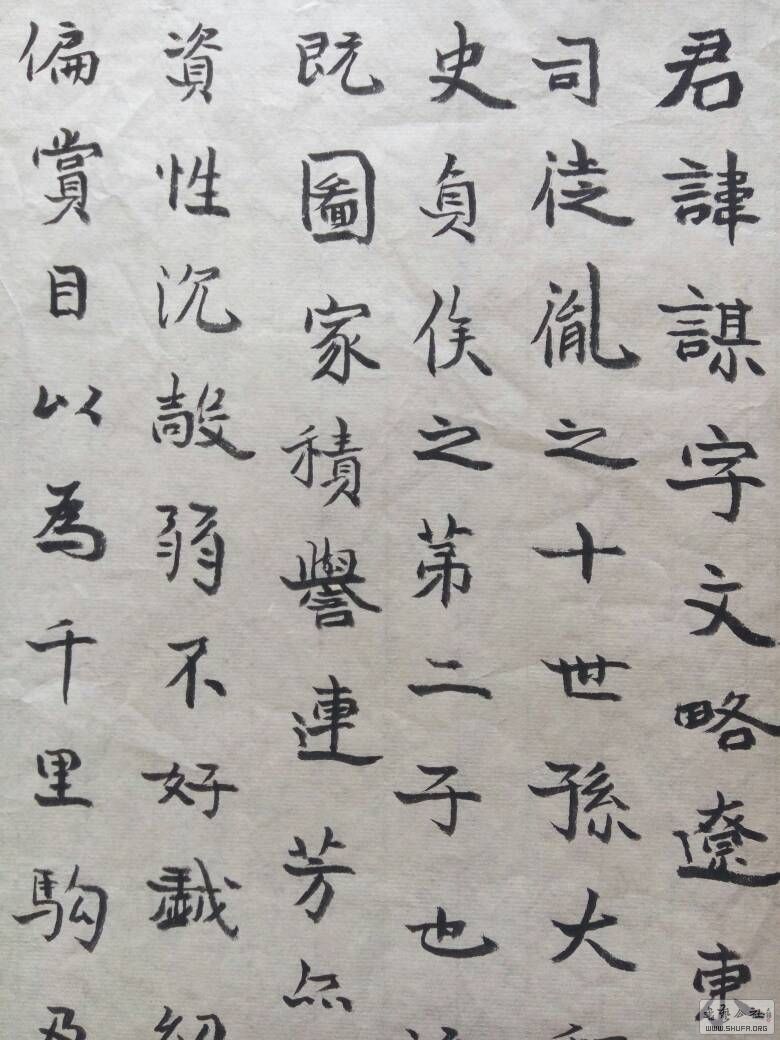 君諱謀字文略遼東
司徒胤之十世孫大
史貞侯之第二子也
既圖家積譽連芳
資性沉敲弱不好戲
偏賞目以為千里駒及
WWW.SHUFA.ORG